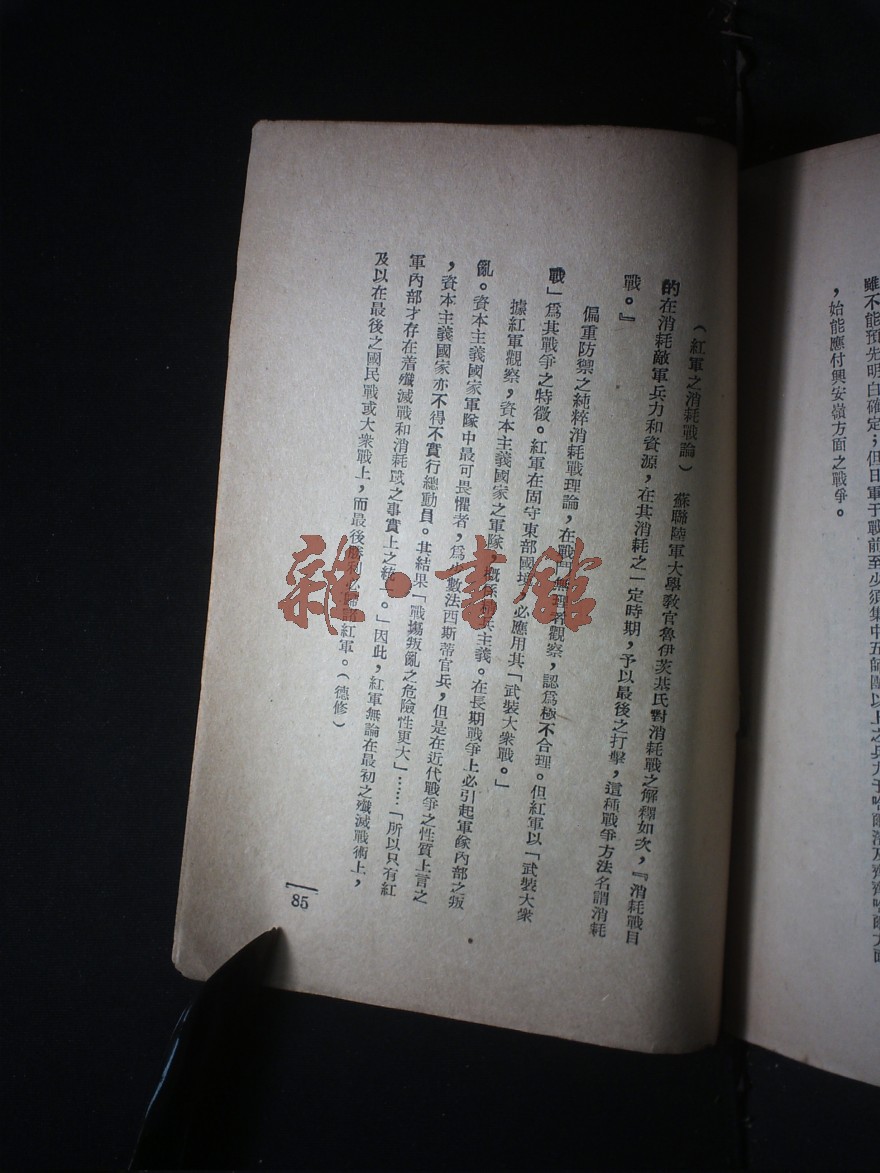 雖不能預先明白確定；但日軍于戰前至少須集中五師團以上之兵力于哈爾濱及齊齊哈爾方面
，始能應付興安嶺方面之戰爭。
（紅軍之消耗戰論）　蘇聯陸軍大學教官魯伊茨基氏對消耗戰之解釋如次，『消耗戰目
的在消耗敵軍兵力和資源，在其消耗之一定時期，予以最後之打擊，這種戰爭方法名謂消耗
戰。』
偏重防禦之純粹消耗戰理論，在戰無理者觀察，認爲極不合理。但紅軍以「武裝大衆
戰」爲其戰爭之特徵。紅軍在固守東部國境，必應用其「武裝大衆戰。」
據紅軍觀察，資本主義國家之軍隊，概係兵主義。在長期戰爭上必引起軍隊內部之叛
亂。資本主義國家軍隊中最可畏懼者，爲少數法西斯蒂官兵，但是在近代戰爭之性質上言之
，資本主義國家亦不得不實行總動員。其結果「戰場叛亂之危險性更大」……「所以只有紅
軍內部才存在着殲滅戰和消耗戰之事實上之統一。」因此，紅軍無論在最初之殲滅戰術上，
及以在最後之國民戰或大衆戰上，而最後勝利必歸紅軍。（德修）
85
雜·書館